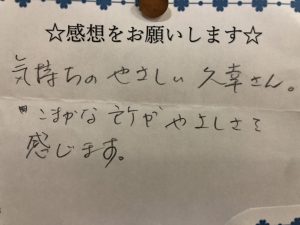 ☆感想をお願いします☆
気持ちのやさしい久幸さん。
こまかな所がやさしさを
感じます。